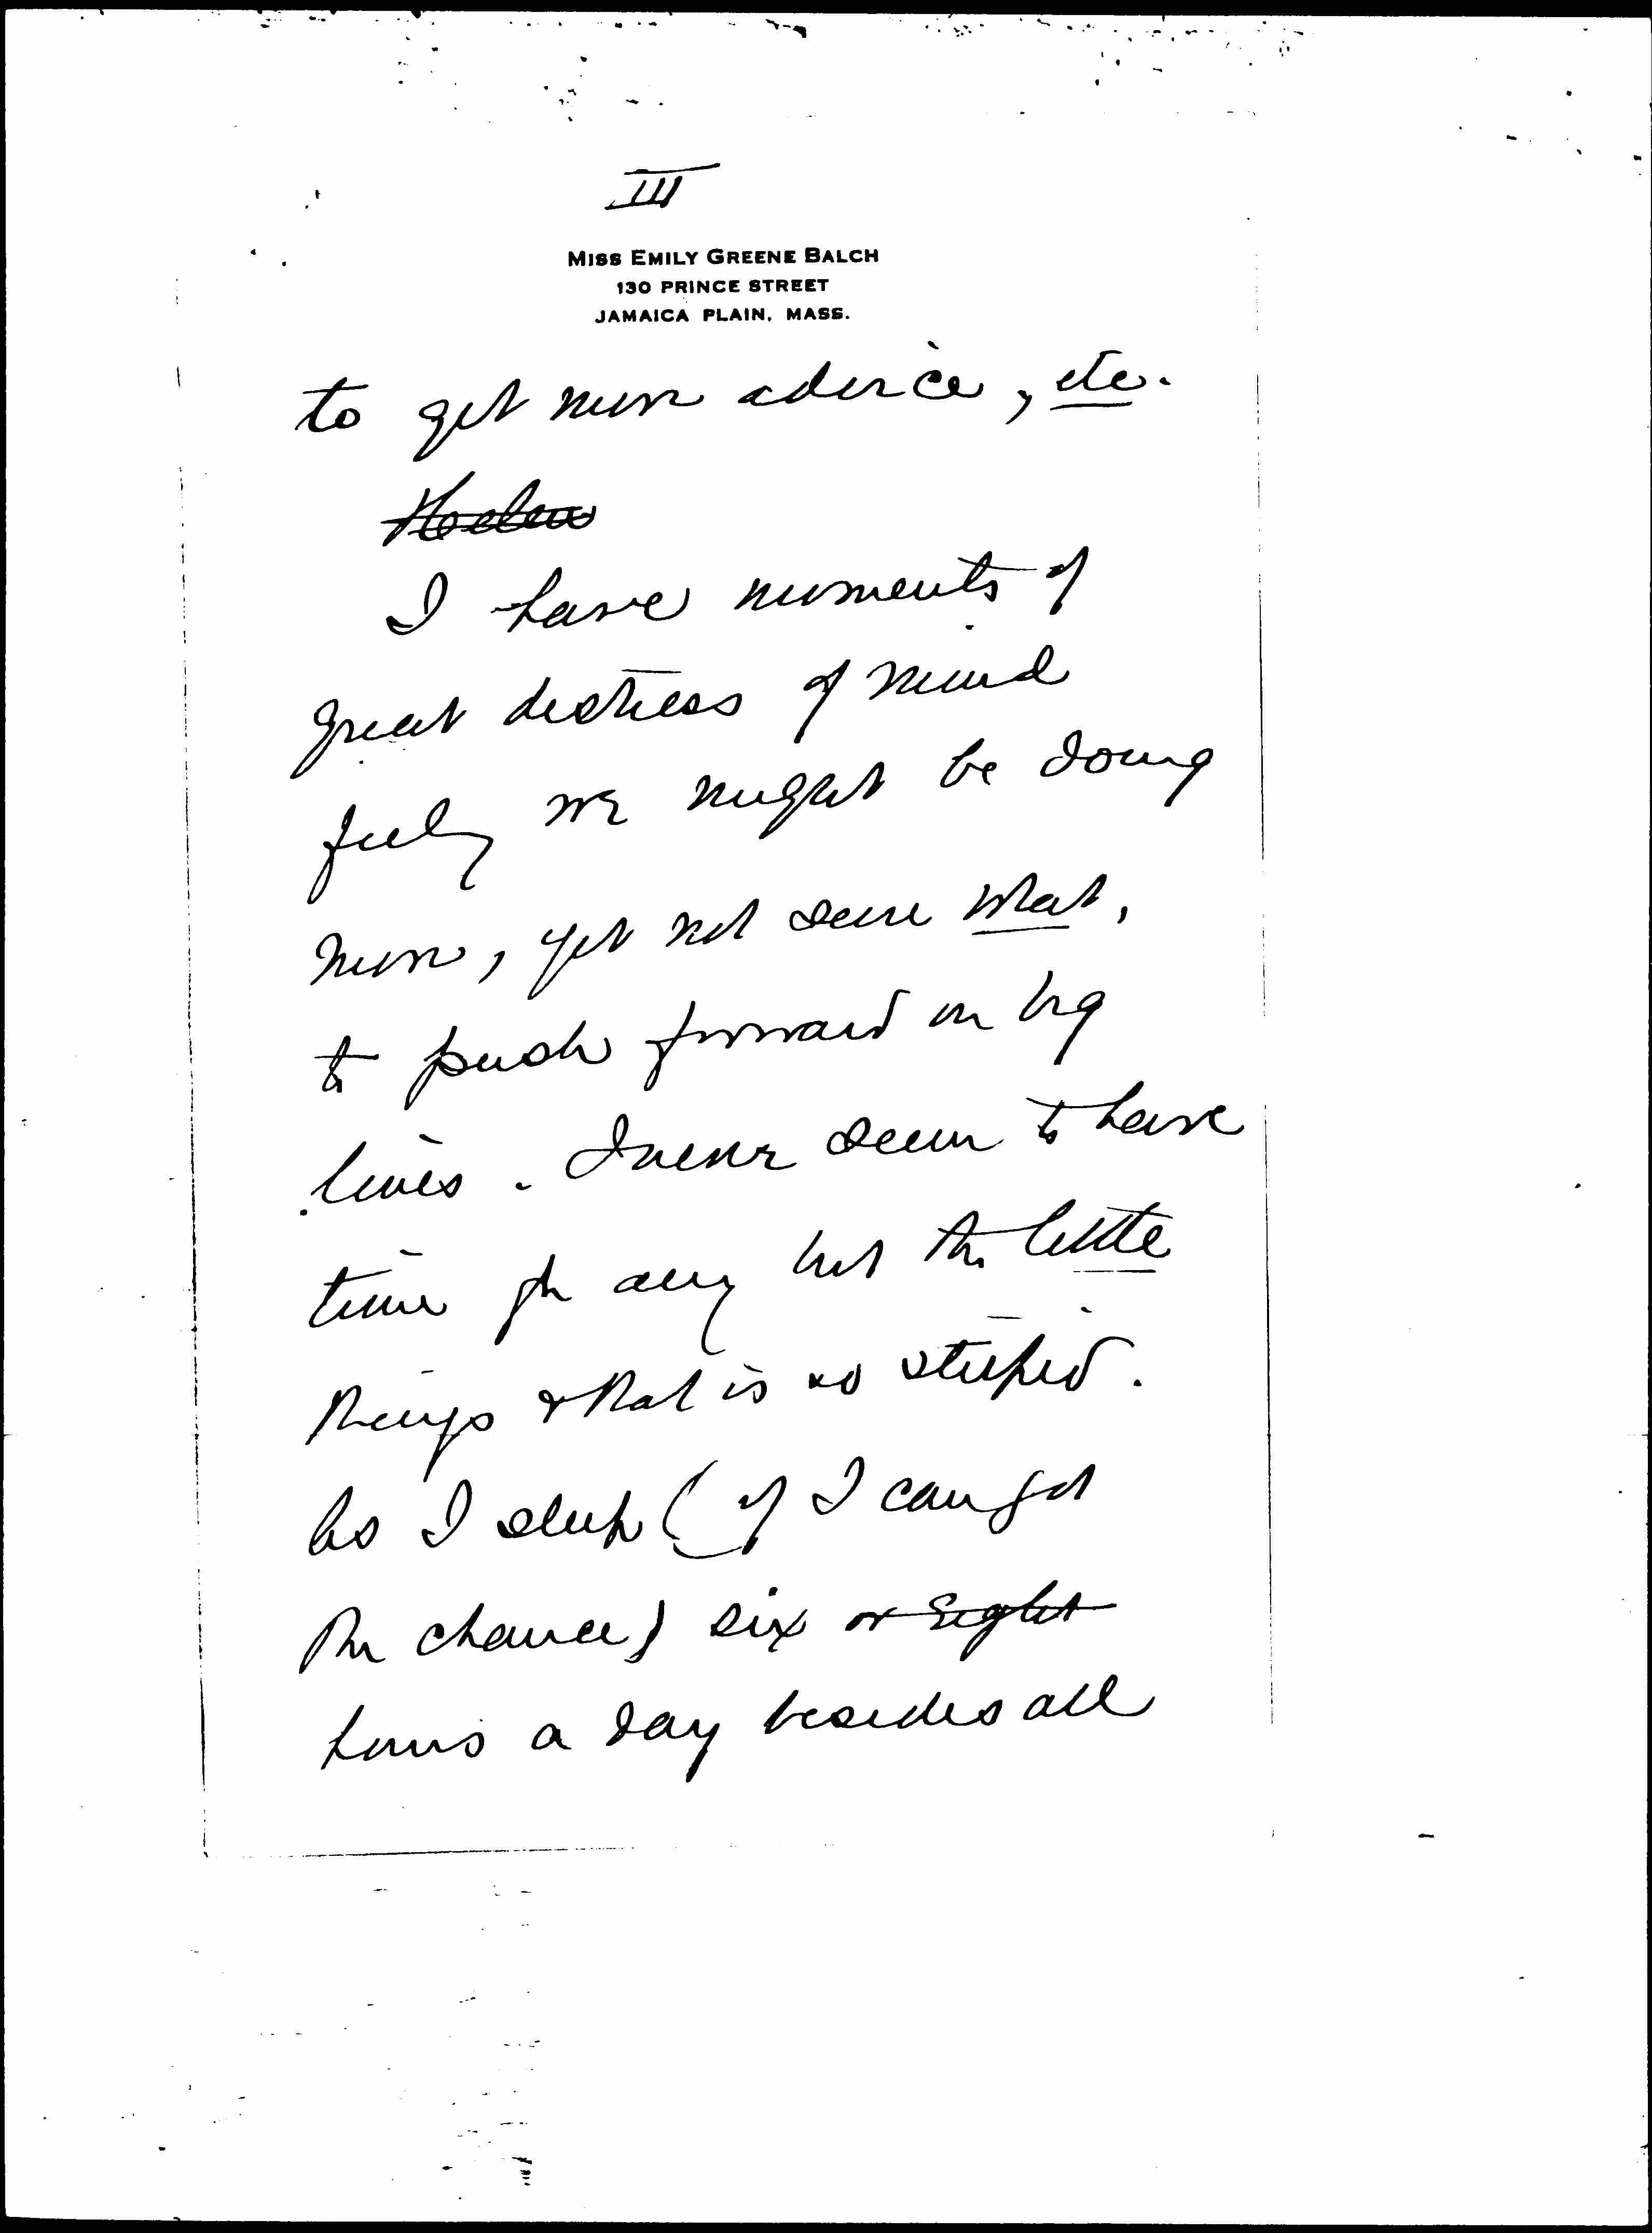 III
MISS EMILY GREENE BALCH
130 PRINCE STREET
JAMAICA PLAIN, MASS.
to get more advice, etc.
I have moments of
great distress of mind
feeling we might be doing
more, yet not sure what,
to push forward on big
lines. I never seem to have
time for any but the little
things & that is so stupid.
As I sleep (if I can get
the chance) six or eight
hours a day besides all